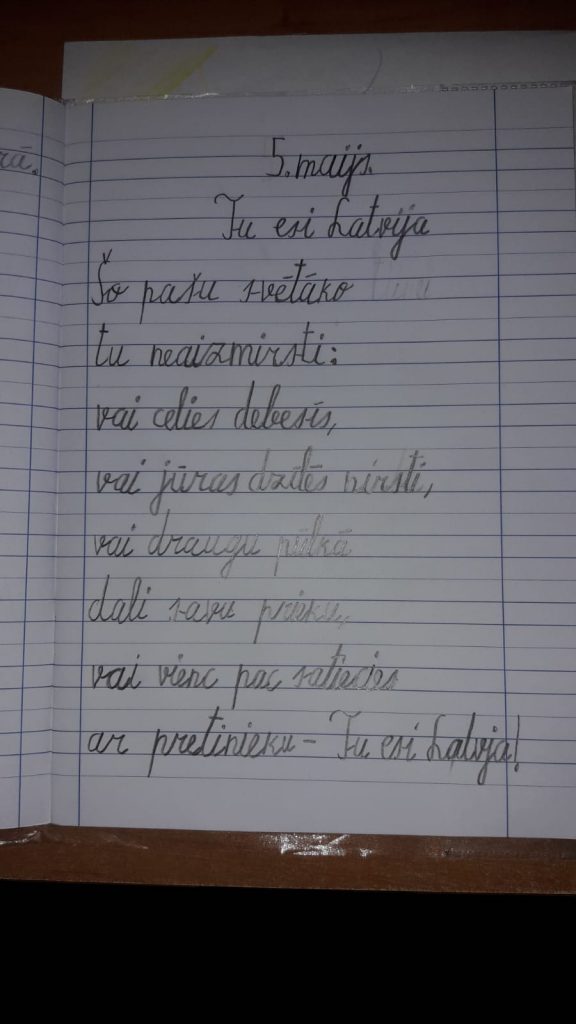 rā.
5. maijs.
Tu esi Latvija
Šo pašu svētāko
tu neaizmirsti:
vai celies debesīs,
vai jūras dzīlēs nirsti,
vai draugu pūlkā
dali savu prieku,
vai vienc pac satiecies
ar pretinieku – Tu esi Latvja!